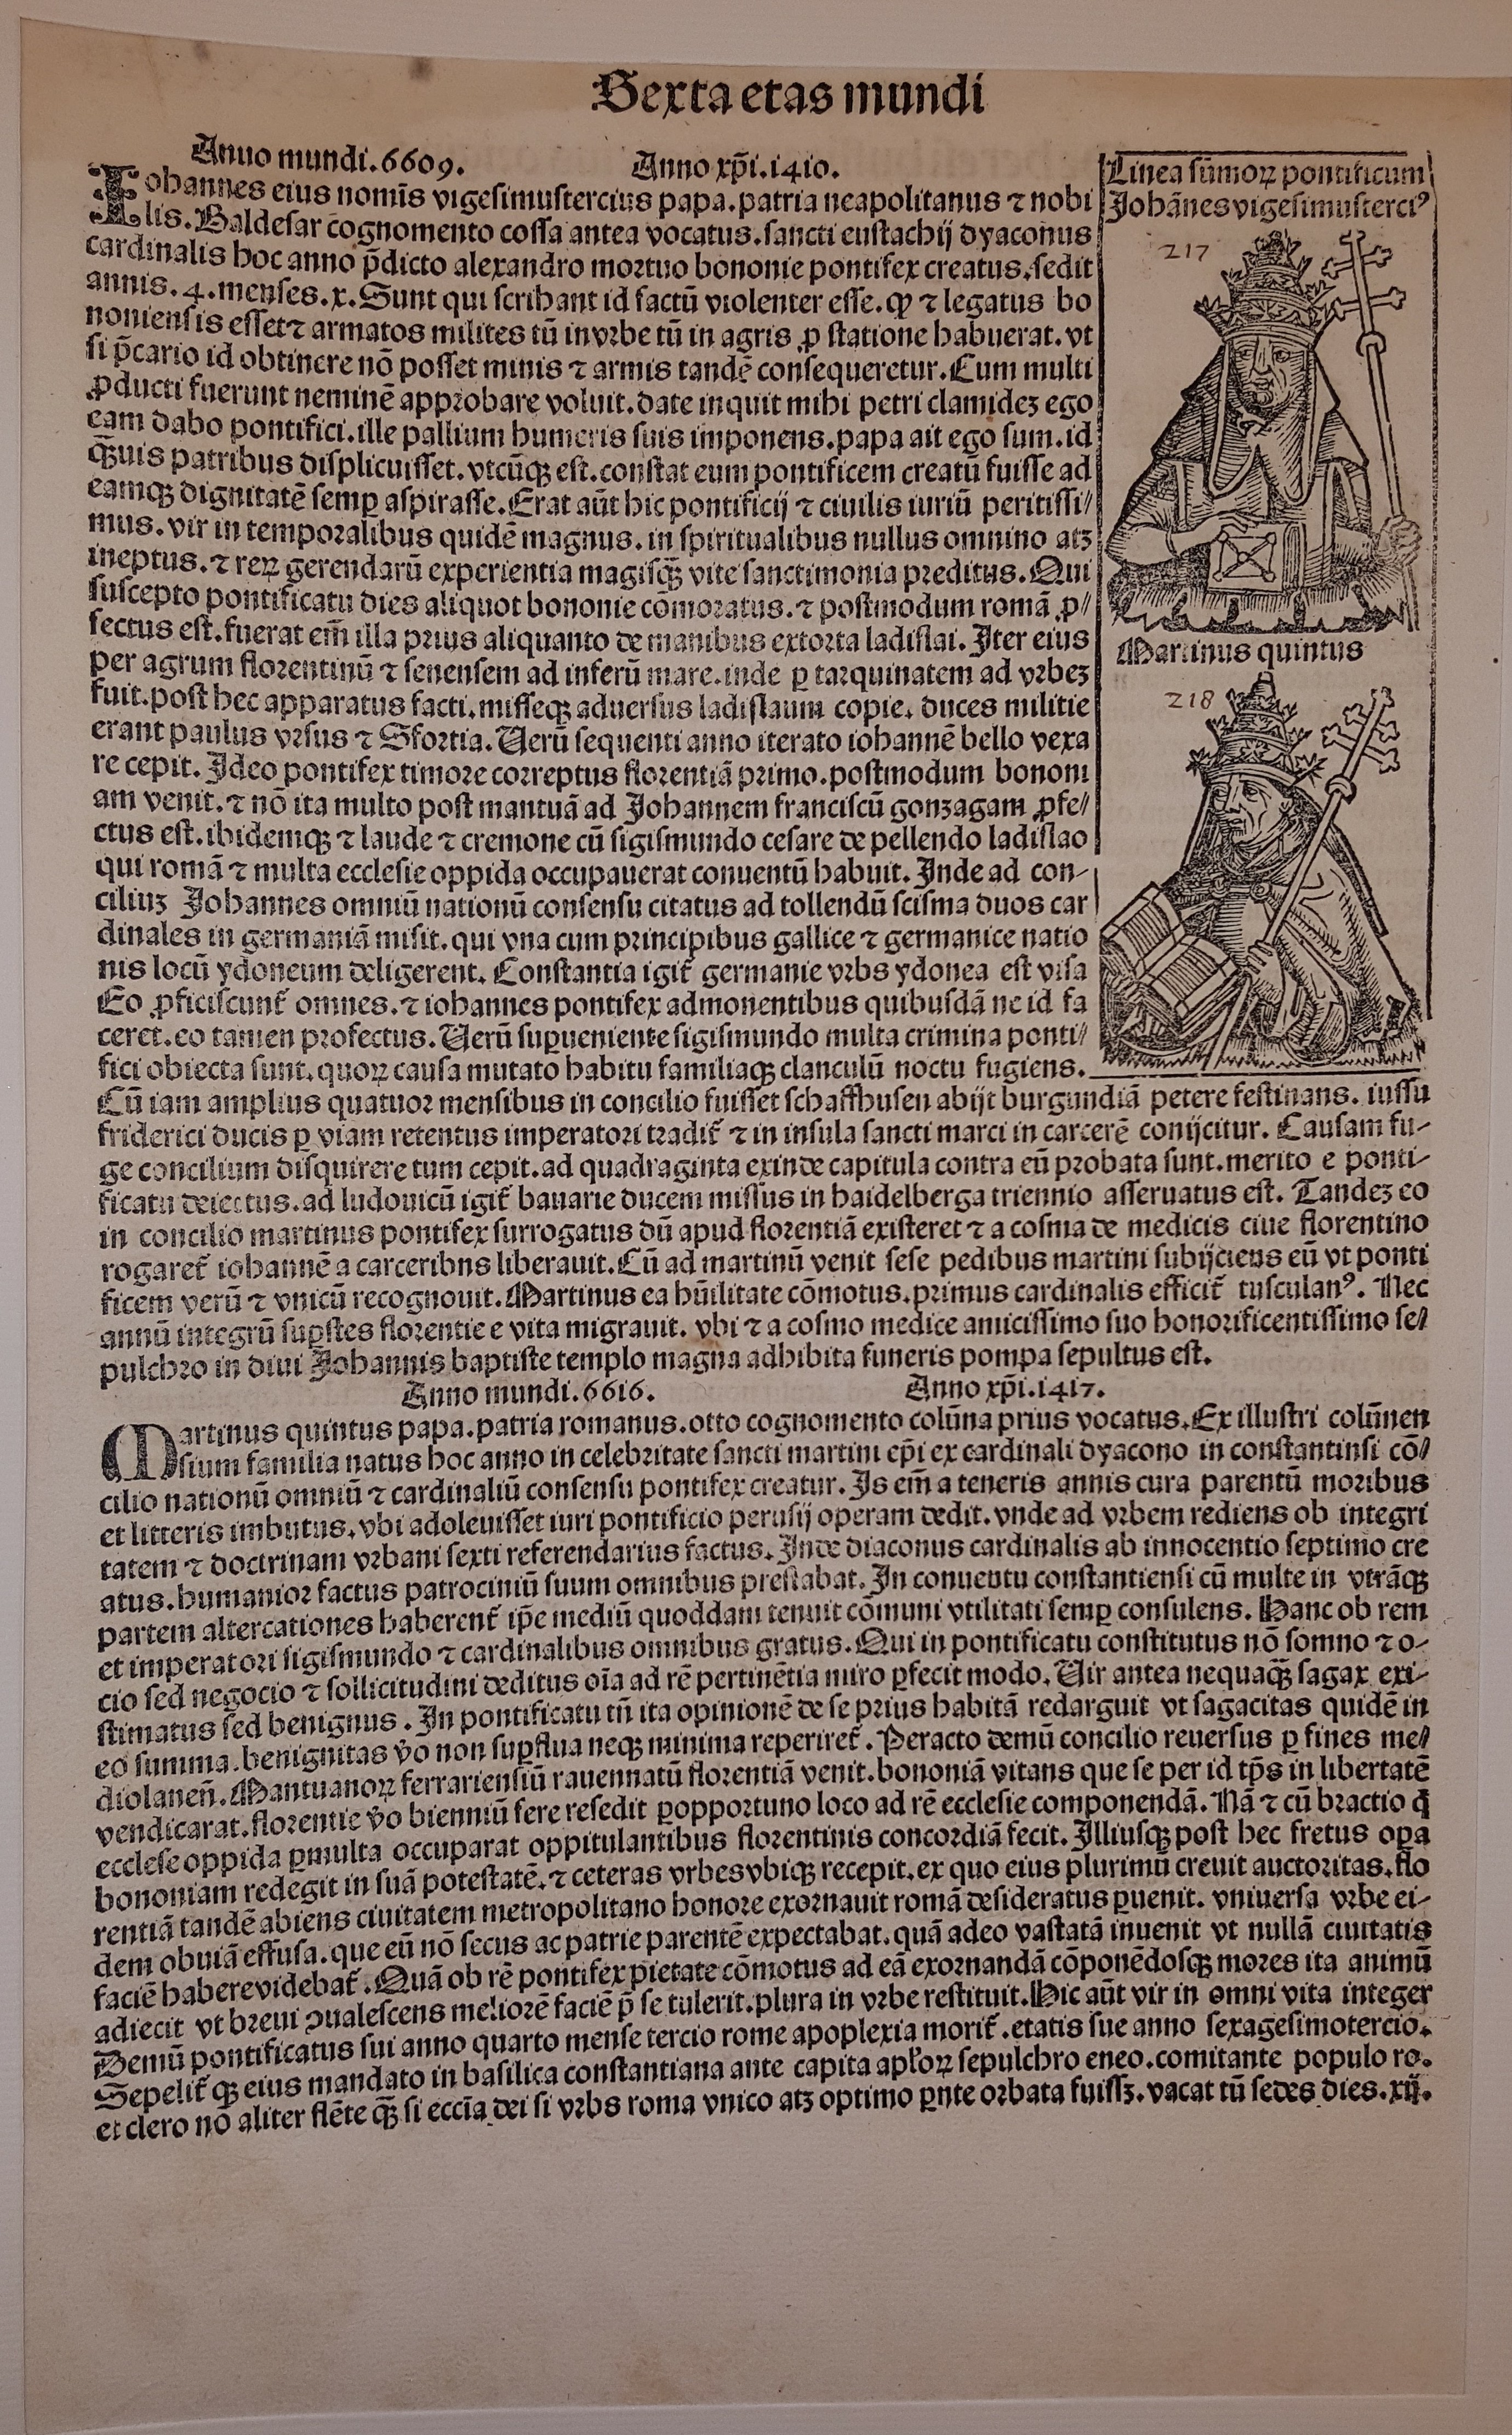 Sexta etas mundi
Anno mundi.6609. Anno xp̄i.1410.
Iohannes eius nomīs vigesimustercius papa.patria neapolitanus ⁊ nobi
lis.Baldesar cōgnomento cossa antea vocatus.sancti eustachij dyaconus
cardinalis hoc anno p̄dicto alexandro mortuo bononie pontifex creatus.sedit
annis.4.menses.x.Sunt qui scribant id factū violenter esse.ꝙ ⁊ legatus bo
noniensis esset⁊ armatos milites tū invrbe tū in agris ꝓ statione habuerat.vt
si p̄cario id obtinere nō posset minis ⁊ armis tandē consequeretur.Cum multi
ꝓducti fuerunt neminē approbare voluit.date inquit mihi petri clamideꝫ ego
eam dabo pontifici.ille pallium humeris suis imponens.papa ait ego sum.id
qȝ̄uis patribus displicuisset.vtcūqȝ est.constat eum pontificem creatū fuisse ad
eamqȝ dignitatē semꝑ aspirasse.Erat aūt hic pontificij ⁊ ciuilis iuriū peritissi/
mus.vir in temporalibus quidē magnus.in spiritualibus nullus omnino atꝫ
ineptus.⁊ reꝝ gerendarū experientia magisqȝ̄ vite sanctimonia preditus.Qui
suscepto pontificatu dies aliquot bononie cōmoratus.⁊ postmodum romā ꝓ/
fectus est.fuerat em̄ illa prius aliquanto de manibus extorta ladislai.Iter eius
per agrum florentinū ⁊ senensem ad inferū mare.inde ꝑ tarquinatem ad vrbeꝫ
fuit.post hec apparatus facti.misseqȝ aduersus ladislaum copie.duces militie
erant paulus vrsus ⁊ Sfortia.Uerū sequenti anno iterato iohannē bello vexa
re cepit.Ideo pontifex timore correptus florentiā primo.postmodum bononi
am venit.⁊ nō ita multo post mantuā ad Johannem franciscū gonzagam ꝓfe/
ctus est.ibidemqȝ ⁊ laude ⁊ cremone cū sigismundo cesare de pellendo ladislao
qui romā ⁊ multa ecclesie oppida occupauerat conuentū habuit.Inde ad con-
ciliuꝫ Johannes omniū nationū consensu citatus ad tollendū scisma duos car
dinales in germaniā misit.qui vna cum principibus gallice ⁊ germanice natio
nis locū ydoneum deligerent.Constantia igit̄ germanie vrbs ydonea est visa
Eo ꝓficiscunt̄ omnes.⁊ iohannes pontifex admonentibus quibusdā ne id fa
ceret.eo tamen profectus.Uerū suꝑueniente sigismundo multa crimina ponti/
fici obiecta sunt.quoꝝ causa mutato habitu familiaqȝ clanculū noctu fugiens.
Linea sūmoꝝ pontificum
Johānes vigesimusterciꝰ
217
Martinus quintus
218
Cū iam amplius quatuor mensibus in concilio fuisset schaffhusen abijt burgundiā petere festinans.iussu
friderici ducis ꝑ viam retentus imperatori tradit̄ ⁊ in insula sancti marci in carcerē conijcitur.Causam fu-
ge concilium disquirere tum cepit.ad quadraginta exinde capitula contra eū probata sunt.merito e ponti-
ficatu deiectus.ad ludouicū igit̄ bauarie ducem missus in haidelberga triennio asseruatus est.Tandeꝫ eo
in concilio martinus pontifex surrogatus dū apud florentiā existeret ⁊ a cosma de medicis ciue florentino
rogaret̄ iohannē a carceribns liberauit.Cū ad martinū venit sese pedibus martini subijciens eū vt ponti
ficem verū ⁊ vnicū recognouit.Martinus ea hūilitate cōmotus.primus cardinalis efficit̄ tusculanꝰ.Nec
annū integrū suꝑstes florentie e vita migrauit.vbi ⁊ a cosmo medice amicissimo suo honorificentissimo se/
pulchro in diui Johannis baptiste templo magna adhibita funeris pompa sepultus est.
Anno mundi.6616. Anno xp̄i.1417.
Martinus quintus papa.patria romanus.otto cognomento colūna prius vocatus.Ex illustri colūnen
sium familia natus hoc anno in celebritate sancti martini ep̄i ex cardinali dyacono in constantinsi cō/
cilio nationū omniū ⁊ cardinaliū consensu pontifex creatur.Is em̄ a teneris annis cura parentū moribus
et litteris imbutus.vbi adoleuisset iuri pontificio perusij operam dedit.vnde ad vrbem rediens ob integri
tatem ⁊ doctrinam vrbani sexti referendarius factus.Inde diaconus cardinalis ab innocentio septimo cre
atus.humanior factus patrociniū suum omnibus prestabat.In conuentu constantiensi cū multe in vtrāqȝ
partem altercationes haberent̄ ip̄e mediū quoddam tenuit cōmuni vtilitati semꝑ consulens.Hanc ob rem
et imperatori sigismundo ⁊ cardinalibus omnibus gratus.Qui in pontificatu constitutus nō somno ⁊ o-
cio sed negocio ⁊ sollicitudini deditus oīa ad rē pertinētia miro ꝑfecit modo.Uir antea nequaqȝ̄ sagax exi-
stimatus sed benignus.In pontificatu tn̄ ita opinionē de se prius habitā redarguit vt sagacitas quidē in
eo summa.benignitas v̄o non suꝑflua neqȝ minima reperiret̄.Peracto demū concilio reuersus ꝑ fines me/
diolanen̄.Mantuanoꝝ ferrariensiū rauennatū florentiā venit.bononiā vitans que se per id tp̄s in libertatē
vendicarat.florentie v̄o bienniū fere resedit ꝑopportuno loco ad rē ecclesie componendā.Nā ⁊ cū bractio q̄
ecclese oppida ꝑmulta occuparat oppitulantibus florentinis concordiā fecit.Illiusqȝ post hec fretus opa
bononiam redegit in suā potestatē.⁊ ceteras vrbesvbiqȝ recepit.ex quo eius plurimū creuit auctoritas.flo
rentiā tandē abiens ciuitatem metropolitano honore exornauit romā desideratus ꝑuenit.vniuersa vrbe ei-
dem obuiā effusa.que eū nō secus ac patrie parentē expectabat.quā adeo vastatā inuenit vt nullā ciuitatis
faciē haberevidebat̄.Quā ob rē pontifex pietate cōmotus ad eā exornandā cōponēdosqȝ mores ita animū
adiecit vt breui ꝯualescens meliorē faciē p̄ se tulerit.plura in vrbe restituit.Hic aūt vir in omni vita integer
Demū pontificatus sui anno quarto mense tercio rome apoplexia morit̄.etatis sue anno sexagesimotercio.
Sepelit̄ qȝ eius mandato in basilica constantiana ante capita apl'oꝝ sepulchro eneo.comitante populo ro.
et clero nō aliter flēte qȝ̄ si eccīa dei si vrbs roma vnico atꝫ optimo ꝑnte orbata fuissꝫ.vacat tū sedes dies.xij.